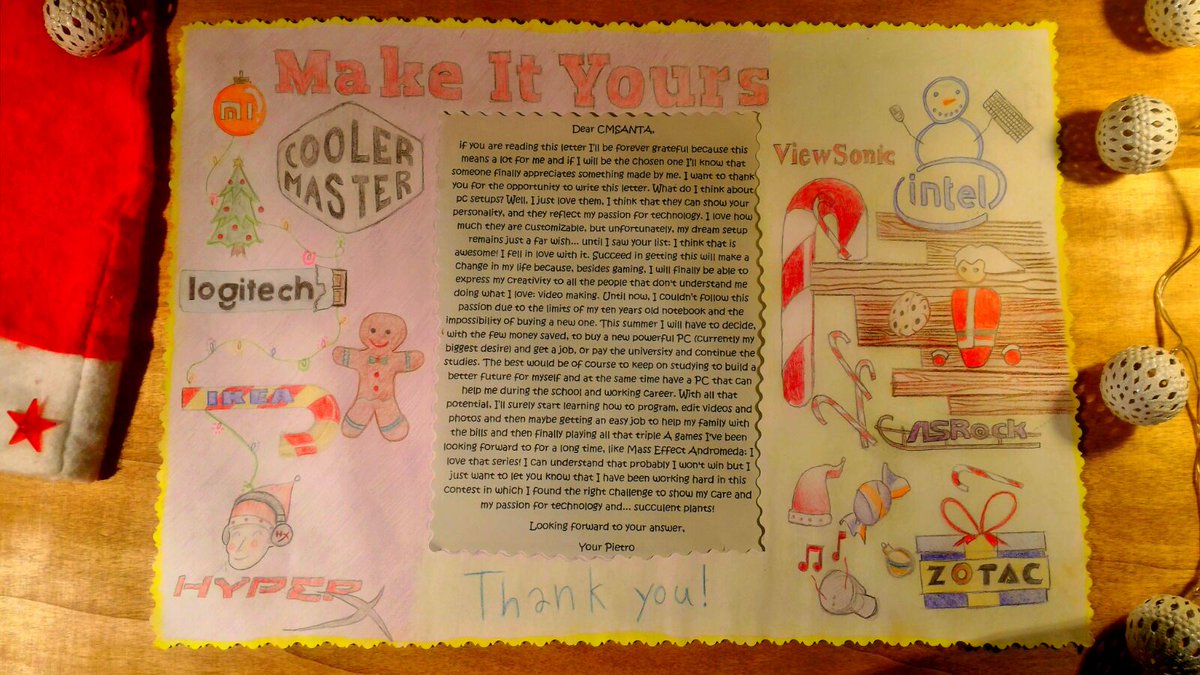 Make It Yours
mi
COOLER
MASTER
logitech
IKEA
HX
HYPERX
Dear CMSANTA,
if you are reading this letter I'll be forever grateful because this
means a lot for me and if I will be the chosen one I'll know that
someone finally appreciates something made by me. I want to thank
you for the opportunity to write this letter. What do I think about
pc setups? Well, I just love them, I think that they can show your
personality, and they reflect my passion for technology. I love how
much they are customizable, but unfortunately, my dream setup
remains just a far wish... until I saw your list: I think that is
awesome! I fell in love with it. Succeed in getting this will make a
change in my life because, besides gaming, I will finally be able to
express my creativity to all the people that don't understand me
doing what I love: video making. Until now, I couldn't follow this
passion due to the limits of my ten years old notebook and the
impossibility of buying a new one. This summer I will have to decide,
with the few money saved, to buy a new powerful PC (currently my
biggest desire) and get a job, or pay the university and continue the
studies. The best would be of course to keep on studying to build a
better future for myself and at the same time have a PC that can
help me during the school and working career. With all that
potential, I'll surely start learning how to program, edit videos and
photos and then maybe getting an easy job to help my family with
the bills and then finally playing all that triple A games I've been
looking forward to for a long time, like Mass Effect Andromeda: I
love that series! I can understand that probably I won't win but I
just want to let you know that I have been working hard in this
contest in which I found the right challenge to show my care and
my passion for technology and... succulent plants!
Looking forward to your answer,
Your Pietro
Thank you!
ViewSonic
intel
ASRock
ZOTAC